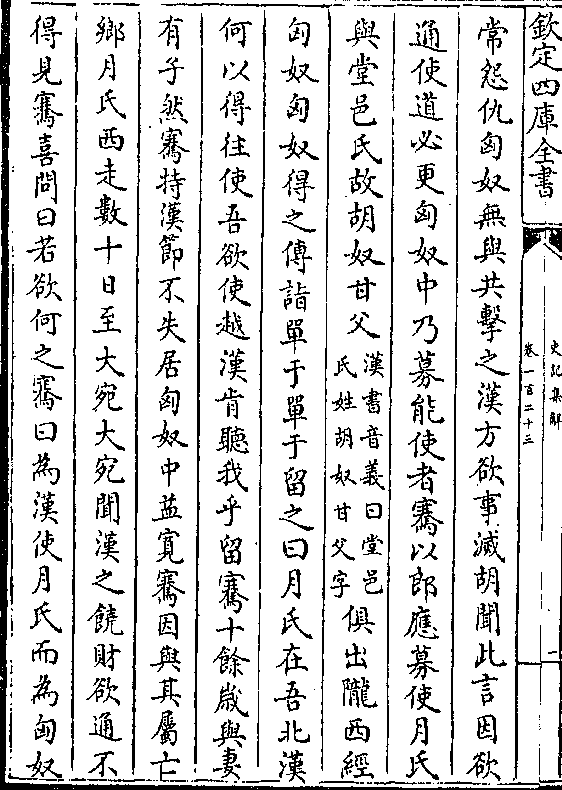 欽定四庫全書
史記集解
卷一百二十三
一
常怨仇匈奴無與共擊之漢方欲事滅胡聞此言因欲
通使道必更匈奴中乃募能使者騫以郎應募使月氏
與堂邑氏故胡奴甘父漢書音義曰堂邑氏姓胡奴甘父字俱出隴西經
匈奴匈奴得之傳詣單于單于留之曰月氏在吾北漢
何以得往使吾欲使越漢肯聽我乎留騫十餘嵗與妻
有子然騫持漢節不失居匈奴中益寛騫因與其屬亡
鄉月氏西走數十日至大宛大宛聞漢之饒財欲通不
得見騫喜問曰若欲何之騫曰為漢使月氏而為匈奴